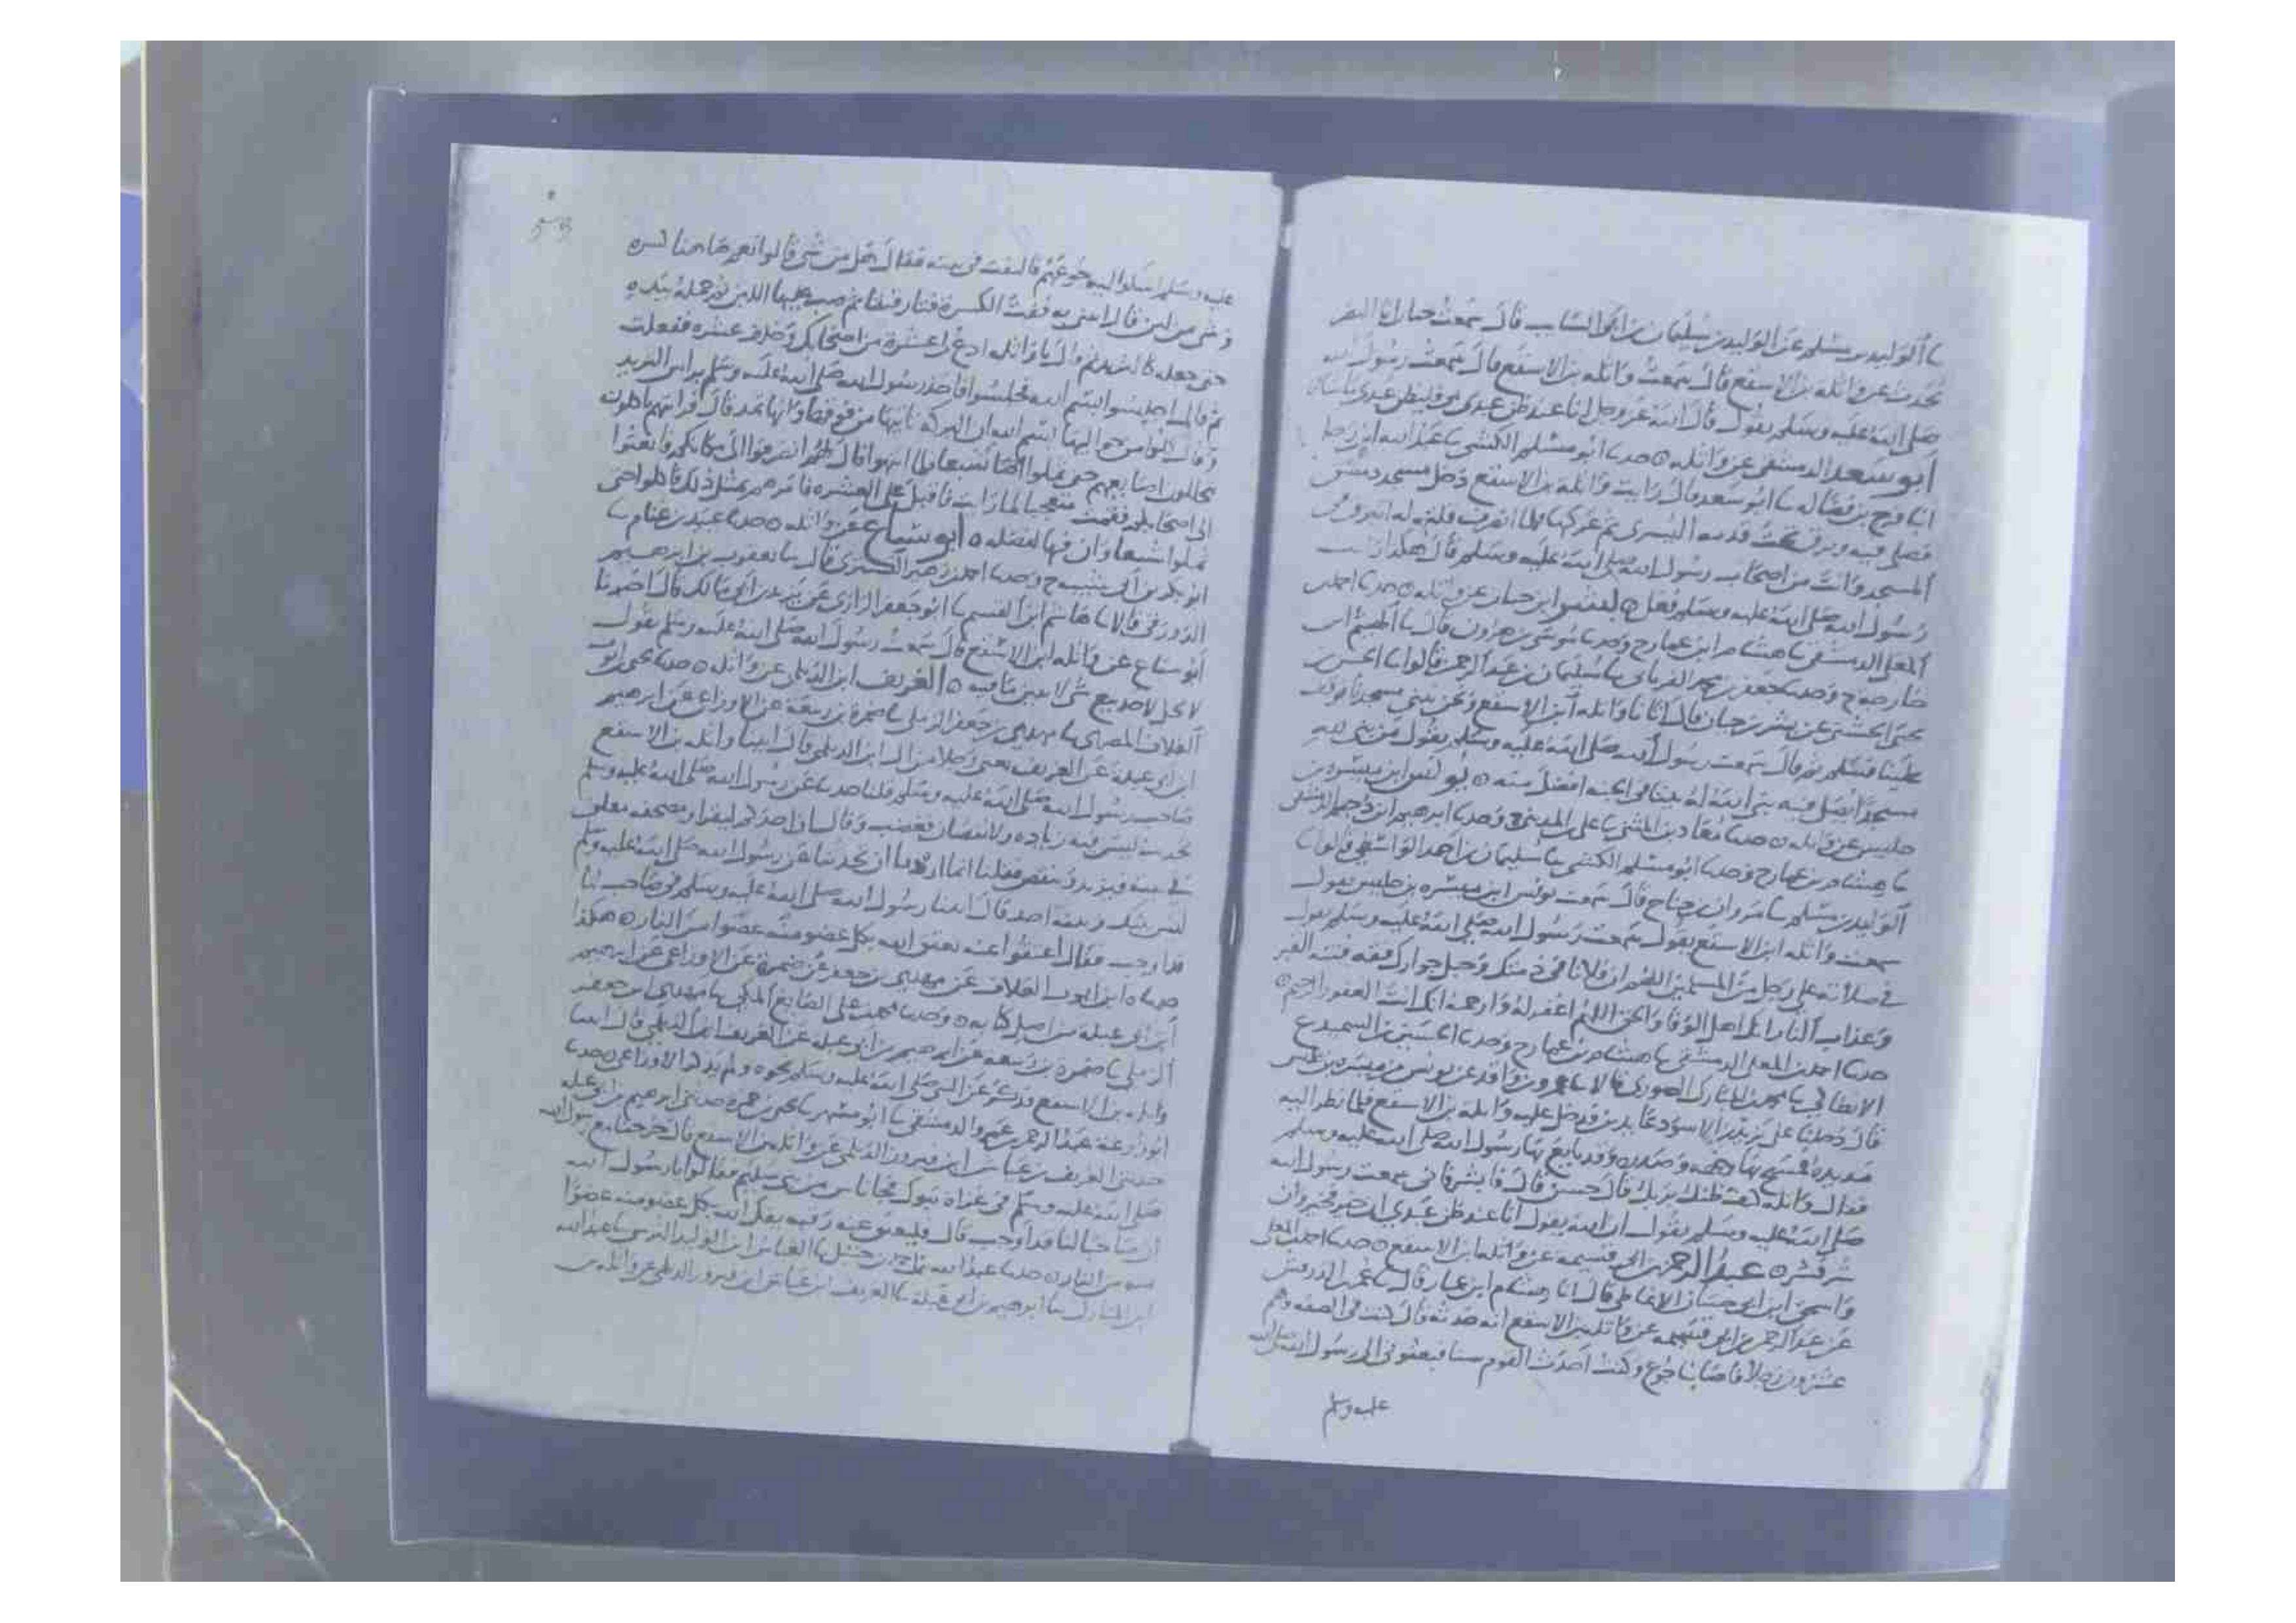 ثا الوليد بن مسلم عن الوليد بن سليمان بن ابي السائب قال سمعت حيان ابا النضر
يحدث عن واثلة بن الاسقع قال سمعت واثلة بن الاسقع قال سمعت رسول الله
صلى الله عليه وسلم يقول قال الله عز وجل انا عند ظن عبدي بي فليظن عبدي بي ما شاء
أبو سعد الدمشقي عن واثلة ه حدثنا ابو مسلم الكشي ثا عبد الله ابن رجا
انا فرج بن فضالة ثا ابو سعد قال رايت واثلة بن الاسقع دخل مسجد دمشق
فصلى فيه وبزق تحت قدمه اليسرى ثم عركها فلما انصرف قلت له اتبزق في
المسجد وانت من اصحاب رسول الله صلى الله عليه وسلم قال هكذا رايت
رسول الله صلى الله عليه وسلم فعل ه بشر ابن حيان عن واثلة ه حدثنا احمد بن
المعلى الدمشقي ثا هشام ابن عمار ح وحدثنا موسى بن هرون قال ثا الهيثم ابن
خارجة ح وحدثنا جعفر بن محمد الفريابي ثا سليمان بن عبد الرحمن قالوا ثا الحسن بن
يحيى الخشني عن بشر بن حيان قال اتانا واثلة ابن الاسقع ونحن نبني مسجدنا فوقف
علينا فسلم ثم قال سمعت رسول الله صلى الله عليه وسلم يقول من بنى لله
مسجدا يصلى فيه بنى الله له بيتا في الجنة افضل منه ه يونس ابن ميسرة بن
حلبس عن واثلة ه حدثنا معاذ بن المثنى ثا علي المديني ح وحدثنا ابرهيم ابن دحيم الدمشقي
ثا هشام بن عمار ح وحدثنا ابو مسلم الكشي ثا سليمان بن احمد الواسطي قالوا ثا
الوليد بن مسلم ثا مروان بن جناح قال سمعت يونس ابن ميسرة بن حلبس يقول
سمعت واثلة ابن الاسقع يقول سمعت رسول الله صلى الله عليه وسلم يقول
في صلاته على رجل من المسلمين اللهم ان فلانا في ذمتك وحبل جوارك فقه فتنة القبر
وعذاب النار انك اهل الوفا والحق اللهم اغفر له وارحمه انك انت الغفور الرحيم ه
حدثنا احمد بن المعلى الدمشقي ثا هشام بن عمار ح وحدثنا الحسين بن السميدع
الانطاكي ثا محمد بن المبارك الصوري قالا ثا عمرو بن واقد عن يونس بن ميسرة بن حلبس
قال دخلنا على يزيد بن الاسود عايدين فدخل عليه واثلة بن الاسقع فلما نظر اليه
مد يده فمسح بها وجهه وصدره وقد بايع بها رسول الله صلى الله عليه وسلم
فقال واثلة كيف ظنك بربك قال حسن قال فابشر فاني سمعت رسول الله
صلى الله عليه وسلم يقول ان الله يقول انا عند ظن عبدي ان خير فخير وان
شر فشر ه عبد الرحمن ابن ابي قسيمة عن واثلة بن الاسقع ه حدثنا احمد بن المعلى
واسحق ابن ابي حسان الانماطي قال ثا هشام ابن عمار قال ثا عمر بن الدرفس
عن عبد الرحمن بن ابي قسيمة عن واثلة بن الاسقع انه حدثه قال كنت في الصفة وهم
عشرون رجلا فاصابنا جوع وكنت احدث القوم سنا فبعثوني الى رسول الله صلى الله
عليه وسلم
عليه وسلم اسلوا اليه جوعهم فالتفت في بيته فقال هل من شي قالوا نعم هاهنا كسرة
وشي من لبن قال ايتني به ففت الكسرة فتا رقيقا ثم صب عليها اللبن ثم جمله بيده
حتى جعله كالثريد ثم قال يا واثلة ادع لي عشرة من اصحابك وخلف عشرة ففعلت
ثم قال اجلسوا بسم الله فجلسوا فاخذ رسول الله صلى الله عليه وسلم براس الثريد
وقال كلوا من حواليها بسم الله فان البركة تاتيها من فوقها وانها تمد قال فرايتهم ياكلون
يتخللون اصابعهم حتى تملوا شبعا فلما انتهوا قال لهم انصرفوا الى مكانكم فابعثوا
الى اصحابكم فقمت متعجبا لما رايت فاقبل على العشرة فامرهم بمثل ذلك فاكلوا حتى
تملوا شبعا وان فيها لفضلة ه ابو سباع عن واثلة ه حدثنا عبيد بن غنام ثا
ابو بكر بن ابي شيبة ح وحدثنا احمد بن زهير التستري قال ثا يعقوب بن ابرهيم
الدورقي قالا ثا هاشم ابن القسم ثا ابو جعفر الرازي عن يزيد بن ابي مالك قال اخبرنا
ابو سباع عن واثلة ابن الاسقع قال سمعت رسول الله صلى الله عليه وسلم يقول
لا يحل لاحد يبيع شي الا بين ما فيه ه الغريف ابن الديلمي عن واثلة ه حدثنا يحيى بن ايوب
العلاف المصري ثا مهدي بن جعفر الرملي ثا ضمرة بن ربيعة عن الاوزاعي عن ابرهيم
ابن ابي عبلة عن الغريف يعني رجلا من ال ابن الديلمي قال اتينا واثلة بن الاسقع
صاحب رسول الله صلى الله عليه وسلم قلنا حدثنا عن رسول الله صلى الله عليه وسلم
بحديث ليس فيه زيادة ولا نقصان فغضب وقال ان احدكم ليقرا ومصحفه معلق
في بيته فيزيد وينقص فقلنا انما اردنا ان تحدثنا عن رسول الله صلى الله عليه وسلم
ليس بينك وبينه احد قال اتينا رسول الله صلى الله عليه وسلم في صاحب لنا
قد اوجب فقال اعتقوا عنه يعتق الله بكل عضو منه عضوا من النار ه هكذا
حدثنا ه ابن ايوب العلاف عن مهدي بن جعفر عن ضمرة عن الاوزاعي عن ابرهيم
ابن ابي عبلة من اصل كتابه ه وحدثنا محمد بن علي الصايغ المكي ثا مهدي ابن جعفر
الرملي ثا ضمرة بن ربيعة عن ابرهيم بن ابي عبلة عن الغريف ابن الديلمي قال اتينا
واثلة بن الاسقع فذكر عن النبي صلى الله عليه وسلم نحوه ولم يذكر الاوزاعي ه حدثنا
ابو زرعة عبد الرحمن بن عمرو الدمشقي ثا ابو مسهر ثا يحيى بن حمزة حدثني ابرهيم بن ابي عبلة
حدثني الغريف بن عياش ابن فيروز الديلمي عن واثلة بن الاسقع قال خرجنا مع رسول الله
صلى الله عليه وسلم في غزاة تبوك فجا ناس من بني سليم فقالوا يا رسول الله
ان صاحبا لنا قد اوجب قال فليعتق عنه رقبة يفك الله بكل عضو منه عضوا
منه من النار ه حدثنا عبد الله بن احمد بن حنبل ثا العباس ابن الوليد النرسي ثا عبد الله
ابن المبارك ثنا ابرهيم بن ابي عبلة ثا الغريف ابن عياش ابن فيروز الديلمي عن واثلة بن